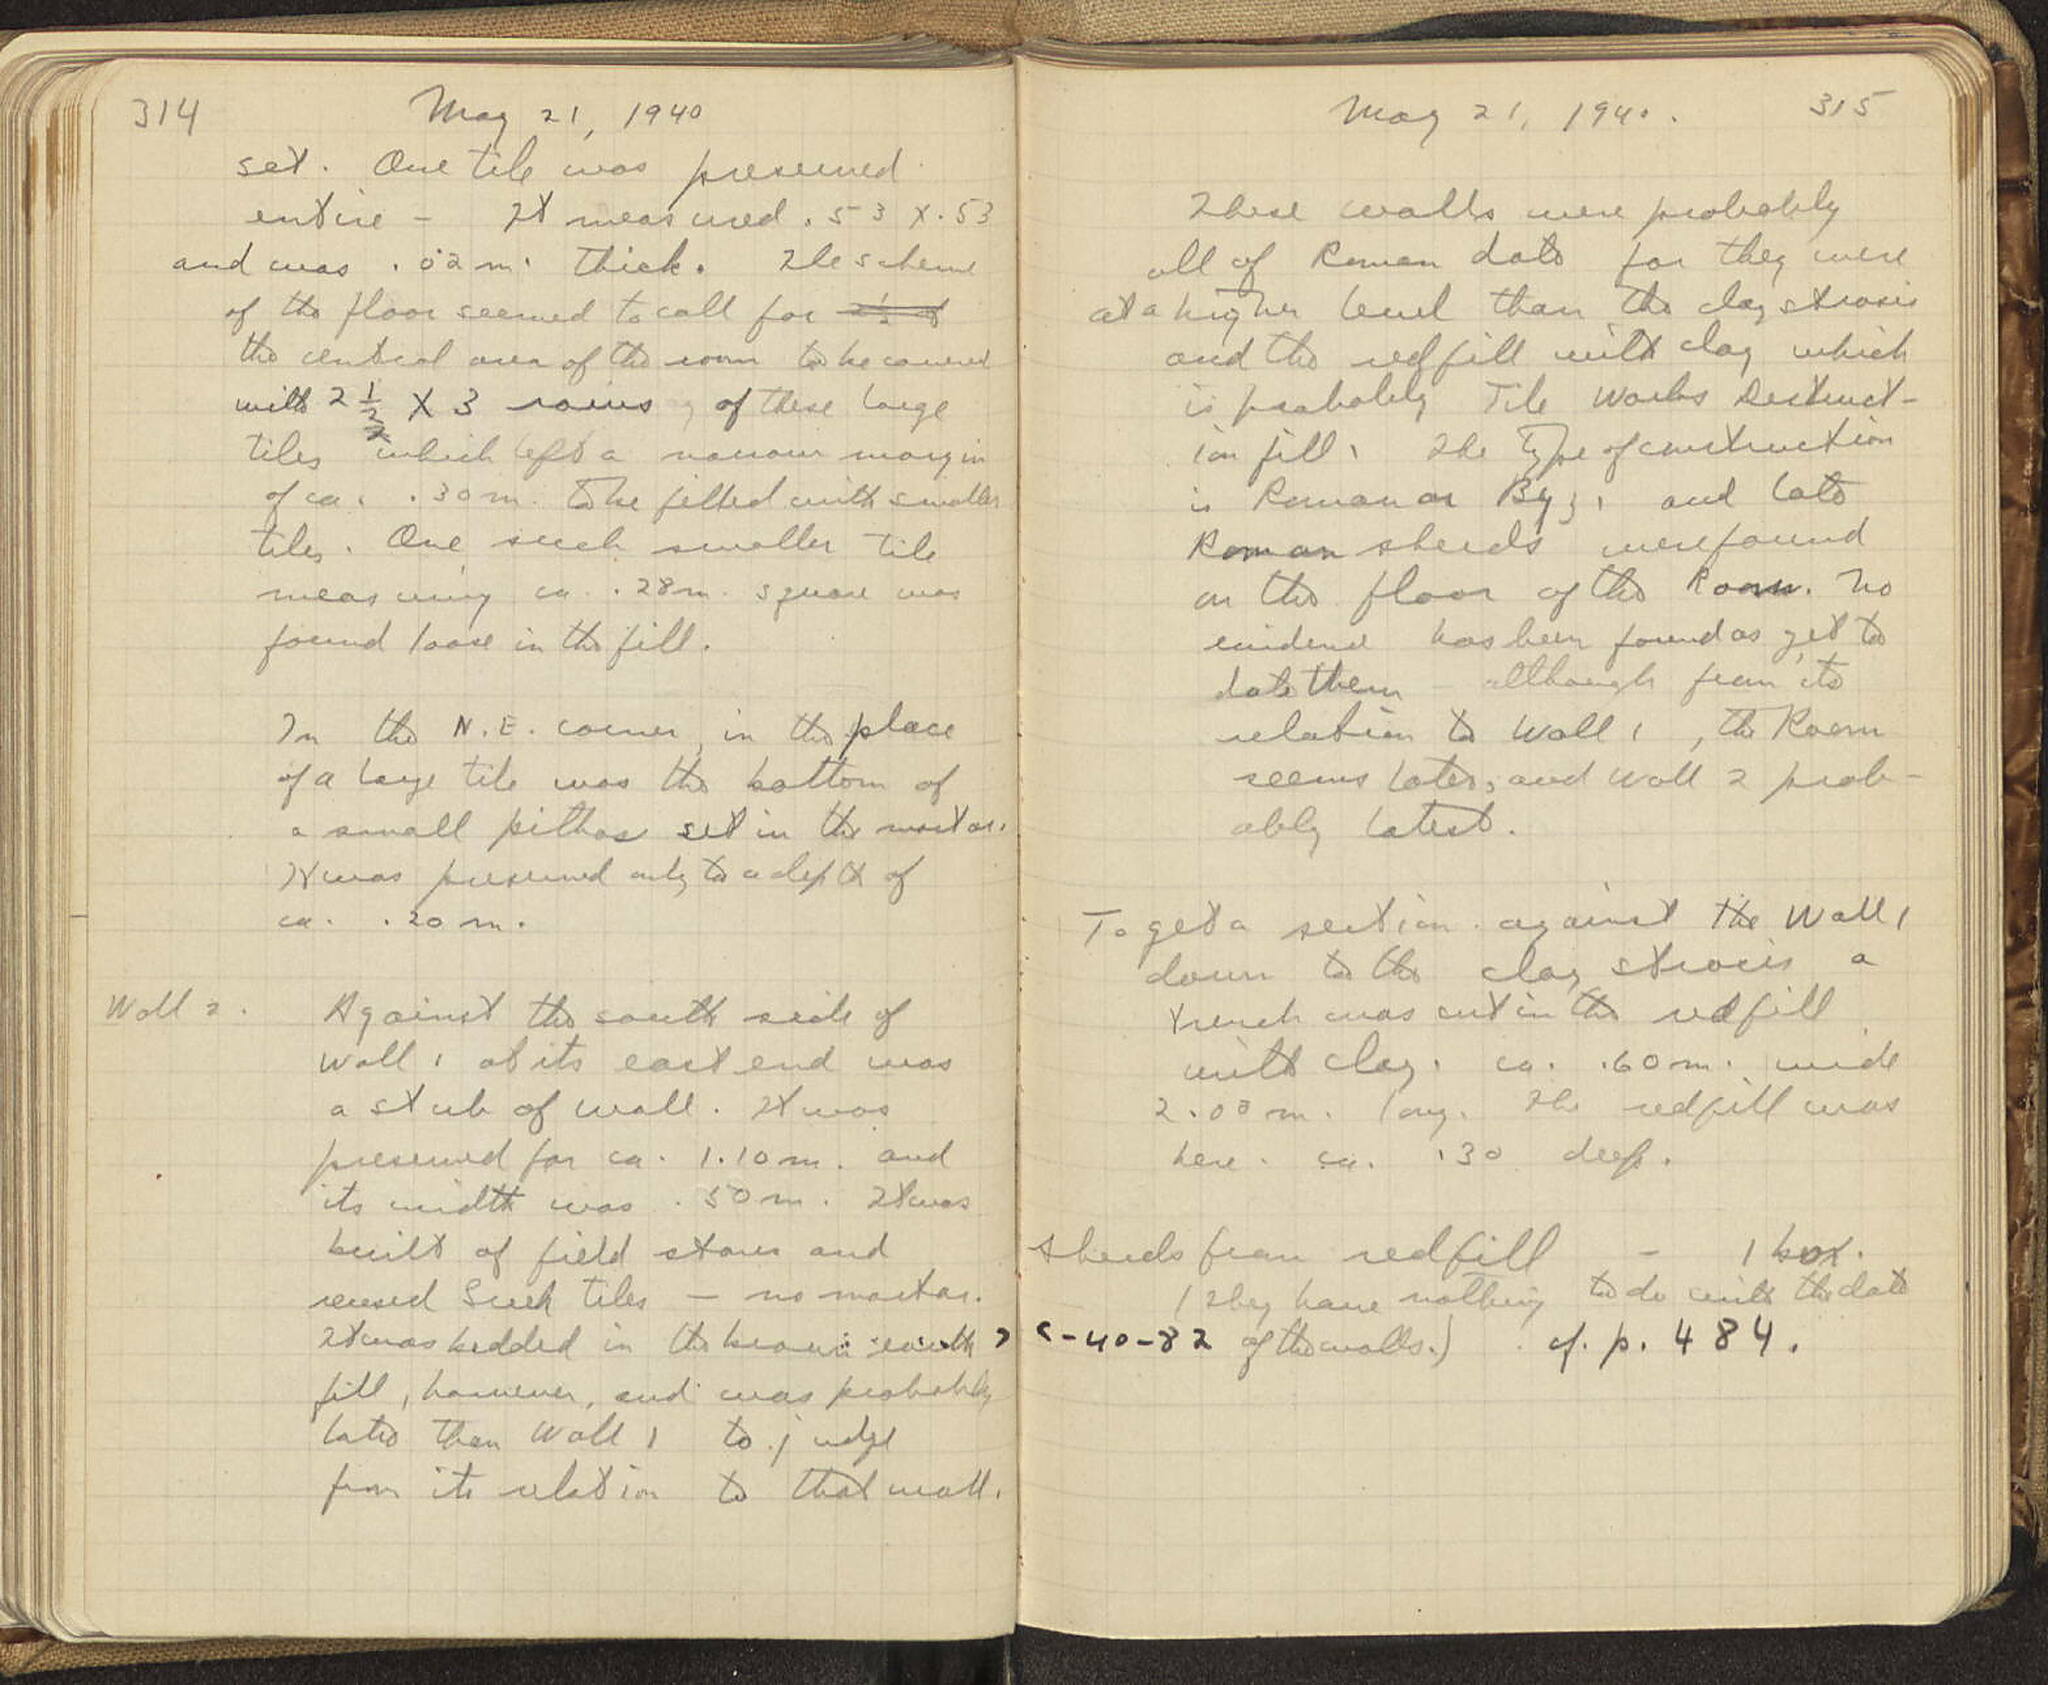 314
May 21, 1940
set. One tile was preserved
entire - It measured .53 x .53
and was .02 m. thick. The scheme
of the floor seemed to call for
the central area of the room to be covered
with 2 1/2 X 3 rows of these large
tiles which left a narrow margin
of ca. .30 m. to be filled with smaller
tiles. One such smaller tile
measuring ca. .28 m. square was
found loose in the fill.
In the N.E. corner, in the place
of a large tile was the bottom of
a small pithos set in the mortar.
It was preserved only to a depth of
ca. .20 m.
Wall 2.
Against the south side of
Wall 1 at its east end was
a stub of wall. It was
preserved for ca. 1.10 m. and
its width was .50 m. It was
built of field stones and
reused such tiles - no mortar.
It was bedded in the brown earth
fill, however, and was probably
later than Wall 1 to judge
from its relation to that wall.
May 21, 1940.
315
These walls were probably
all of Roman date for they were
at a higher level than the clay stroses
and the red fill with clay which
is probably Tile Works Destruct-
ion fill. The type of construction
is Roman or Byz, and late
Roman sherds were found
on the floor of the Room. No
evidence has been found as yet to
date them - although from its
relation to Wall 1, the Room
seems later, and Wall 2 prob-
ably latest.
To get a section against the Wall 1
down to the clay stroses a
trench was cut in the red fill
with clay. ca. .60 m. wide
2.00 m. long. The red fill was
here. ca. .30 deep.
Sherds from red fill - 1 box.
(They have nothing to do with the date
C-40-82 of the walls.) cf. p. 484.